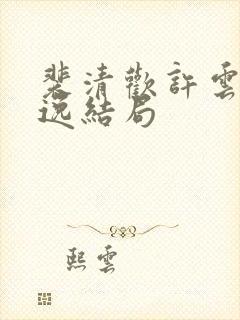 裴清歡許雲
逸結局
熙雲